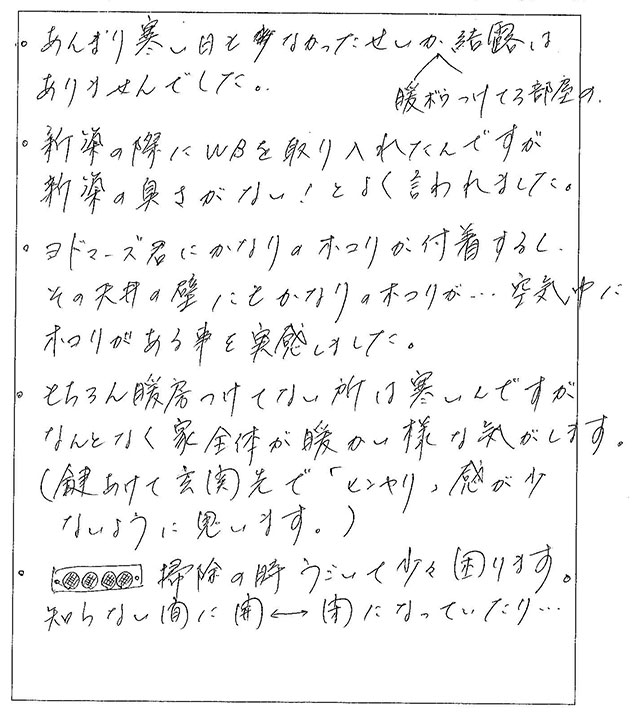 。あんまり寒い日も多なかったせいか 結露は
ありませんでした。
暖ボウつけてる部屋の、
。新築の際にWBを取り入れたんですが
新築の臭さがない!とよく言われました。
。ヨドマーズ君にかなりのホコリが付着するし、
その天井の壁にもかなりのホコリが… 空気中に
ホコリがある事を実感しました。
。もちろん暖房つけてない所は寒いんですが
なんとなく家全体が暖かい様な気がします。
(鍵あけて玄関先で「ヒンヤリ」感が少
ないように思います。)
。掃除の時うごいて少々困ります。
知らない間に開↔閉になっていたり…